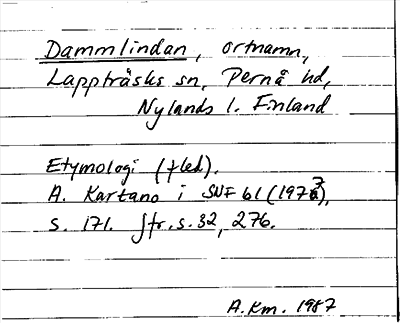 Dammlindan, ortnamn,
Lappträsks sn, Pernå hd,
Nylands l. Finland
Etymologi (fled).
A. Kartano i SNF 61 (1977),
s. 171. Jfr. s. 32, 276.
A.Km. 1987